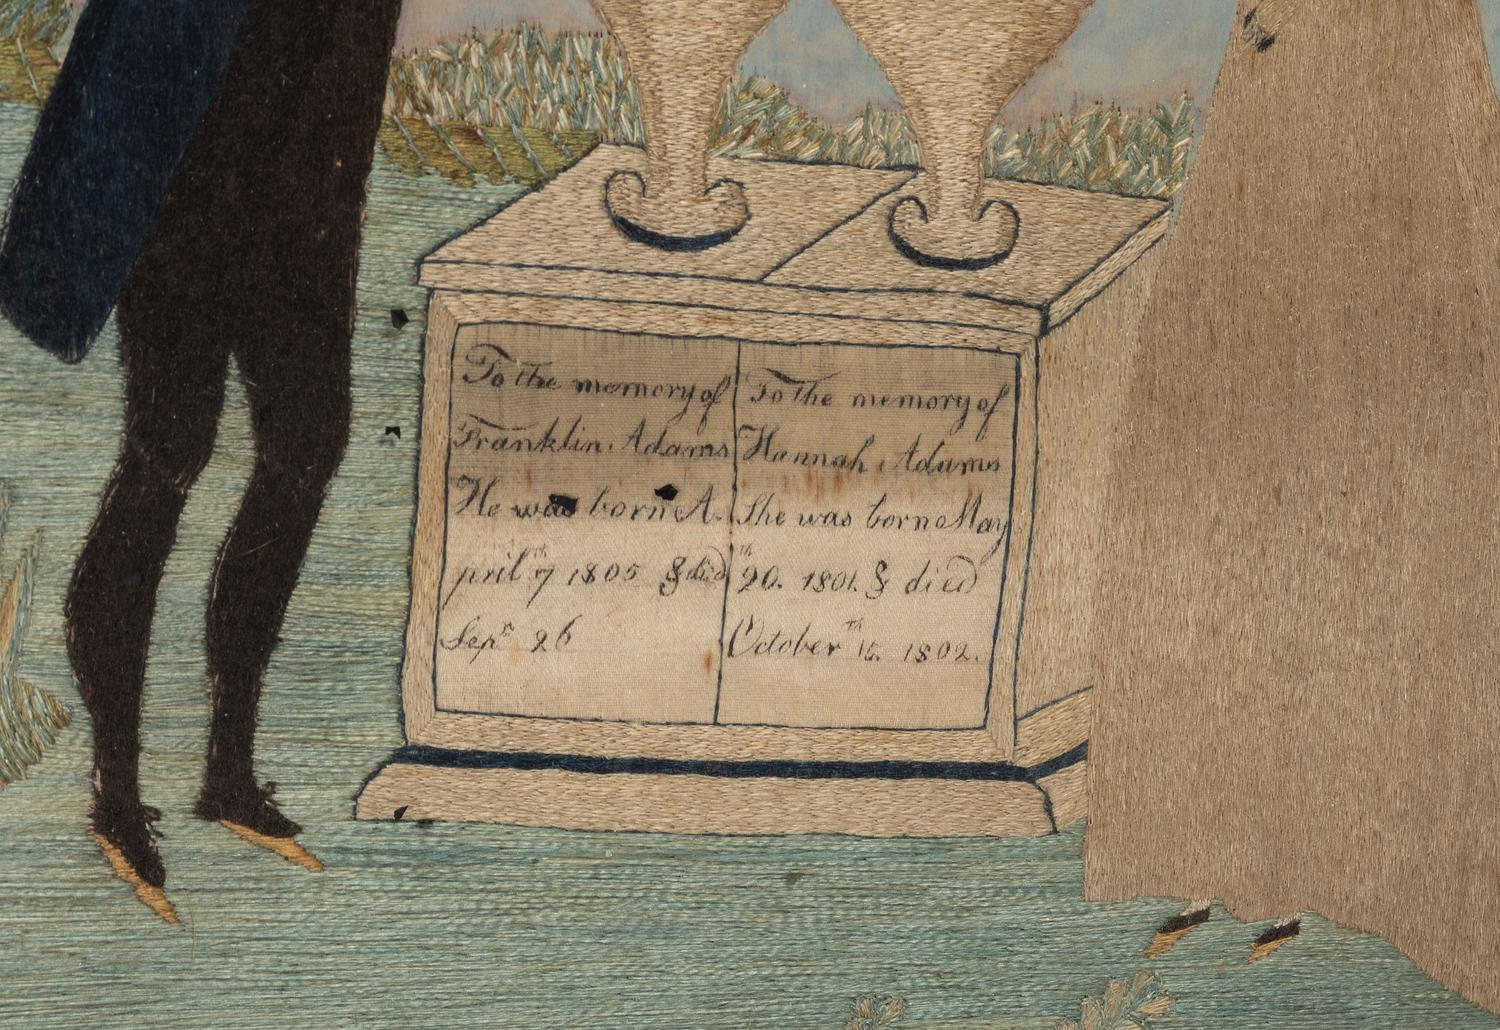 To the memory of
Franklin Adams
He was born A-
pril 7th 1805 & died
Sepr 26
To the memory of
Hannah Adams
She was born May
20th. 1801. & died
October 15th. 1802.